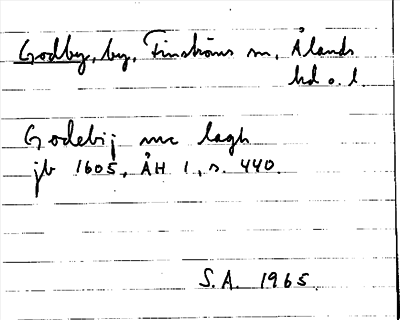 Godby, by, Finströms sn, Ålands
hd o. l.
Godebij mc lagh
jb 1605, ÅH 1, s. 440.
S.A. 1965.